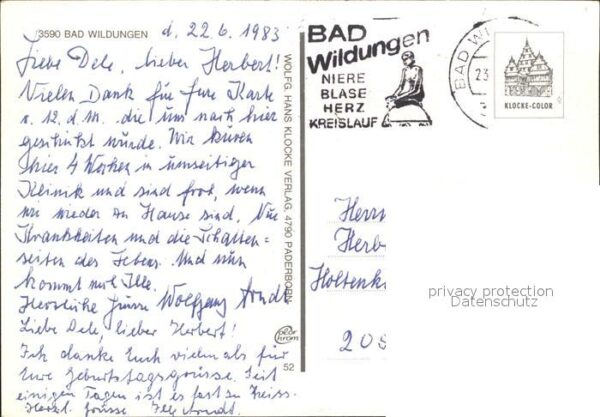 3590 BAD WILDUNGEN
d. 22.6.1983
Liebe Dele, lieber Herbert!
Vielen Dank für Eure Karte
v. 12. d. M. die uns nach hier
geschickt wurde. Wir kuren
hier 4 Wochen in umseitiger
Klinik und sind froh, wenn
wir wieder zu Hause sind. Nur
Krankheiten und die Schatten=
seiten des Lebens. Und nun
kommt noch Ille.
Herzliche Grüsse Wolfgang Arndt
Liebe Dele, lieber Herbert!
Ich danke Euch vielmals für
Eure Geburtstagsgrüsse. Seit
einigen Tagen ist es fast zu heiss.
Herzl. Grüsse Ille Arndt.
WOLFG. HANS KLOCKE VERLAG, 4790 PADERBORN
color chrom
52
BAD
Wildungen
NIERE
BLASE
HERZ
KREISLAUF
BAD WI
23
KLOCKE-COLOR
Herrn
Herbe
Holtenk
205
privacy protection
Datenschutz